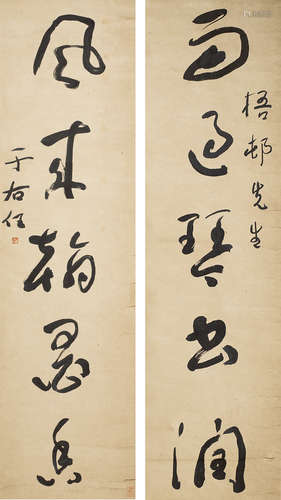 雨過琴書潤
梧邨先生
風來翰墨香
于右任